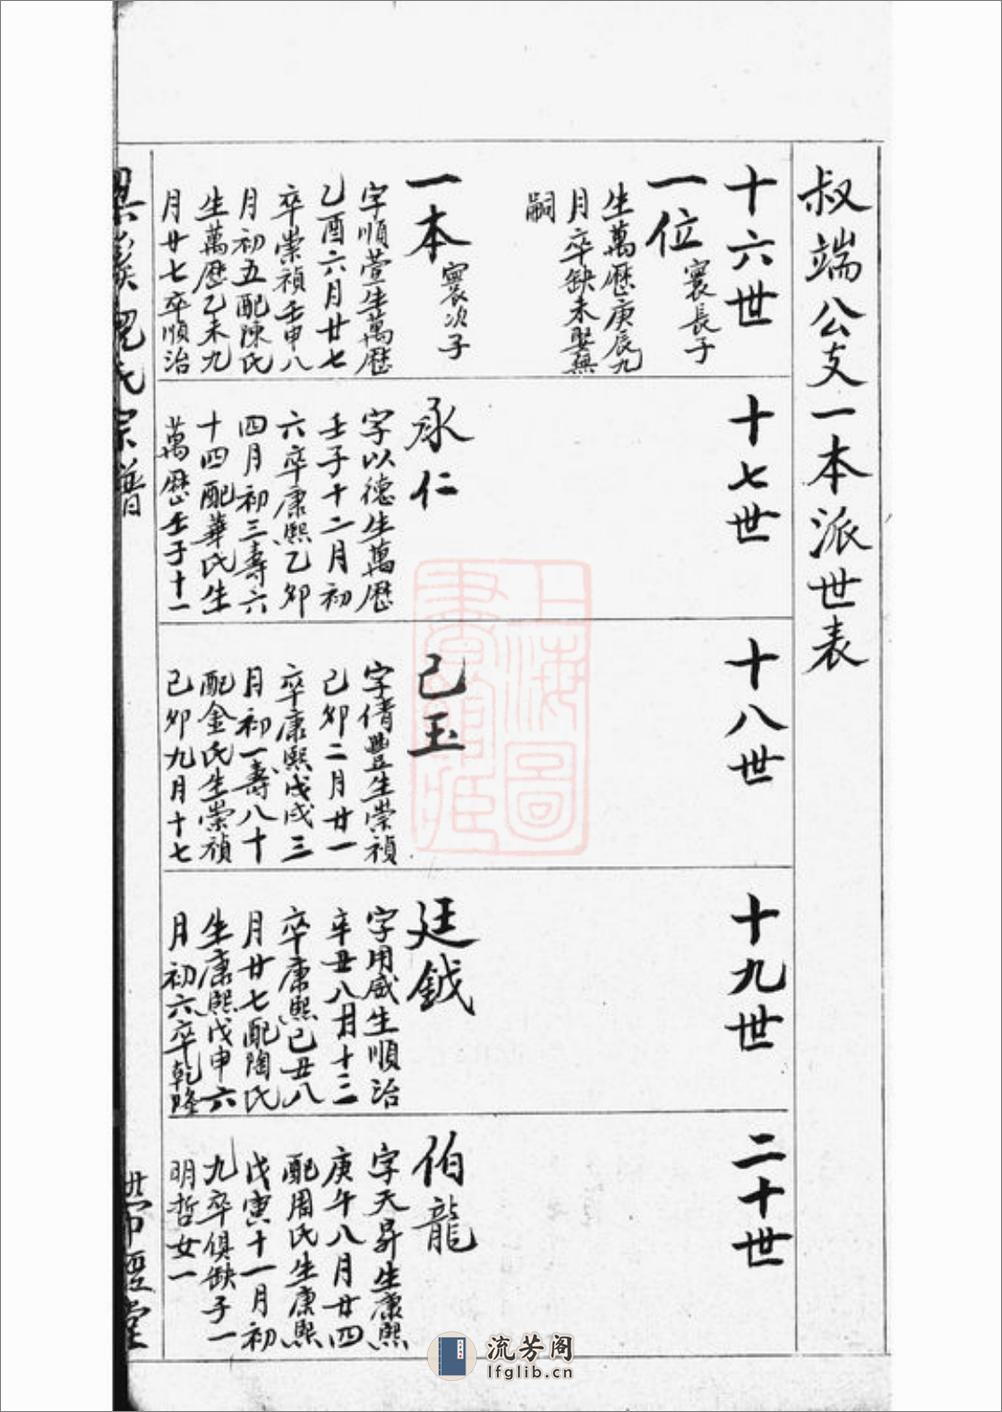 叔端公支一本派世表
十六世
一位 寰長子
生萬歷庚辰九
月卒缺未娶無
嗣
一本 寰次子
字順萱生萬歷
乙酉六月廿七
卒崇禎壬申八
月初五配陳氏
生萬歷乙未九
月廿七卒順治
十七世
承仁
字以德生萬歷
壬子十二月初
六卒康熙乙卯
四月初三壽六
十四配華氏生
萬歷壬子十一
十八世
己玉
字倩豊生崇禎
己卯二月廿一
卒康熙戊戌三
月初一壽八十
配金氏生崇禎
己卯九月十七
十九世
廷鉞
字用咸生順治
辛丑八月十二
卒康熙己丑八
月廿七配陶氏
生康熙戊申六
月初六卒乾隆
二十世
伯龍
字天昇生康熙
庚午八月廿四
配周氏生康熙
戊寅十一月初
九卒俱缺子一
明哲女一
氏宗譜
經堂
上海圖
書館藏
流芳阁
lfglib.cn